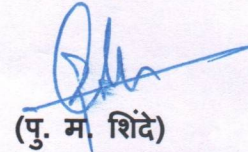 (पु. म. शिंदे)